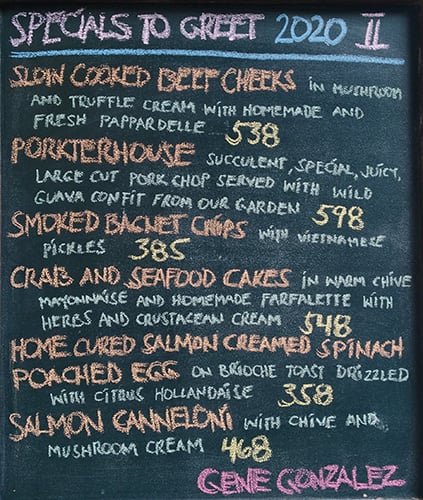 SPECIALS TO GREET 2020 II
SLOW COOKED BEEF CHEEKS IN MUSHROOM
AND TRUFFLE CREAM WITH HOMEMADE AND
FRESH PAPPARDELLE 538
PORKTERHOUSE SUCCULENT, SPECIAL, JUICY,
LARGE CUT PORK CHOP SERVED WITH WILD
GUAVA CONFIT FROM OUR GARDEN 598
SMOKED BAGNET CHIPS WITH VIETNAMESE
PICKLES 385
CRAB AND SEAFOOD CAKES IN WARM CHIVE
MAYONNAISE AND HOMEMADE FARFALETTE WITH
HERBS AND CRUSTACEAN CREAM 548
HOME CURED SALMON CREAMED SPINACH
POACHED EGG ON BRIOCHE TOAST DRIZZLED
WITH CITRUS HOLLANDAISE 358
SALMON CANNELONI WITH CHIVE AND
MUSHROOM CREAM 468
GENE GONZALEZ